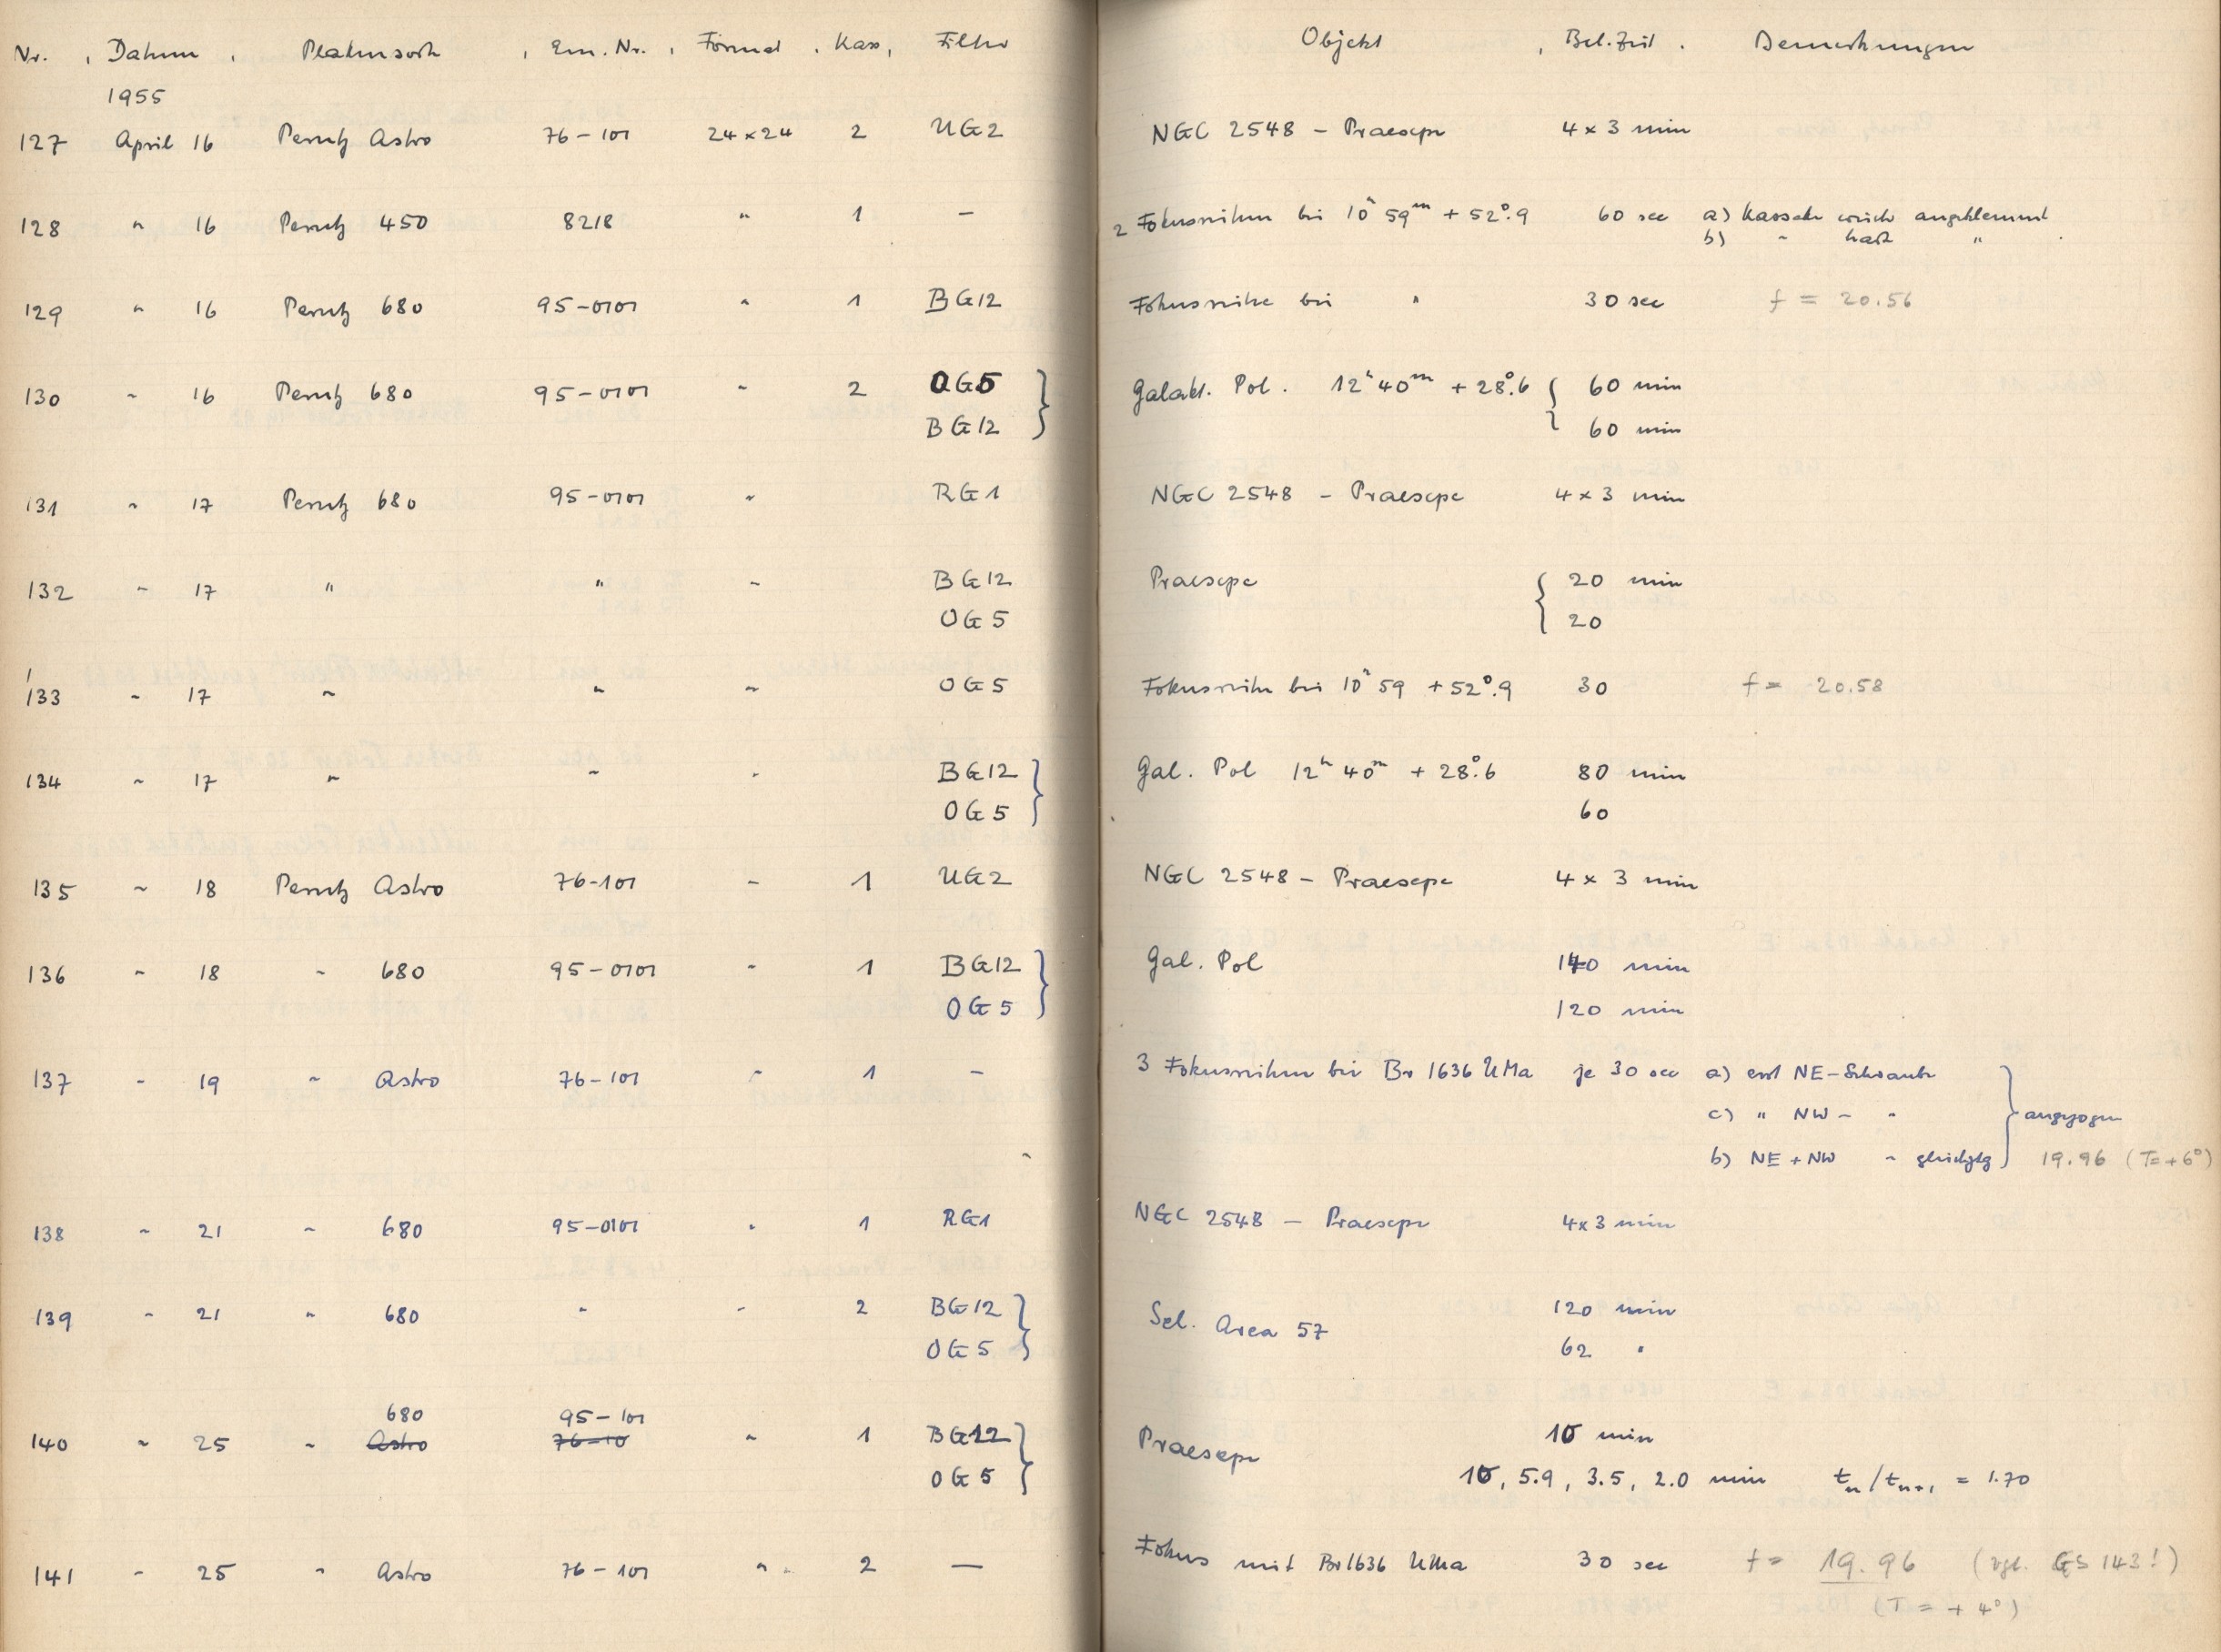 Nr. , Datum , Plattensorte , Em. Nr. , Format , Kass, Filter Objekt , Bel.Zeit . Bemerkungen
1955
127 April 16 Perutz Astro 76-101 24×24 2 UG2 NGC 2548 - Praesepe 4×3 min
128 " 16 Perutz 450 8218 " 1 - 2 Fokusreihen bei 10h 59m + 52°.9 60 sec a) Kassette weich angeklemmt
b) " hart "
129 " 16 Perutz 680 95-0101 " 1 BG12 Fokusreihe bei " 30 sec f = 20.56
130 " 16 Perutz 680 95-0101 " 2 OG5 Galakt. Pol. 12h 40m + 28°.6 60 min
BG12 60 min
131 " 17 Perutz 680 95-0101 " RG1 NGC 2548 - Praesepe 4×3 min
132 " 17 " " " BG12 Praesepe 20 min
OG5 20
133 " 17 " " " OG5 Fokusreihe bei 10h 59 + 52°.9 30 f = 20.58
134 " 17 " " " BG12 Gal. Pol 12h 40m + 28°.6 80 min
OG5 60
135 " 18 Perutz Astro 76-101 " 1 UG2 NGC 2548 - Praesepe 4×3 min
136 " 18 " 680 95-0101 " 1 BG12 Gal. Pol 140 min
OG5 120 min
137 " 19 " Astro 76-101 " 1 - 3 Fokusreihen bei Br 1636 UMa je 30 sec a) erst NE-Schraube
c) " NW - " angezogen
b) NE + NW " gleichztg 19.96 (T=+6°)
138 " 21 " 680 95-0101 " 1 RG1 NGC 2548 - Praesepe 4×3 min
139 " 21 " 680 " " 2 BG12 Sel. Area 57 120 min
OG5 62 "
680 95-101
140 " 25 " Astro 76-10 " 1 BG12 Praesepe 10 min
OG5 10, 5.9, 3.5, 2.0 min tn/tn+1 = 1.70
141 " 25 " Astro 76-101 " 2 — Fokus mit Br 1636 UMa 30 sec f = 19.96 (vgl. GS 143!)
(T = + 4°)